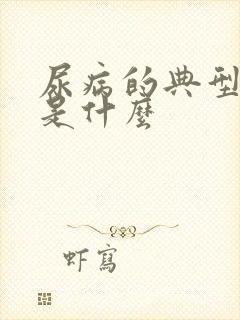 尿病的典型
是什麼
虾寫